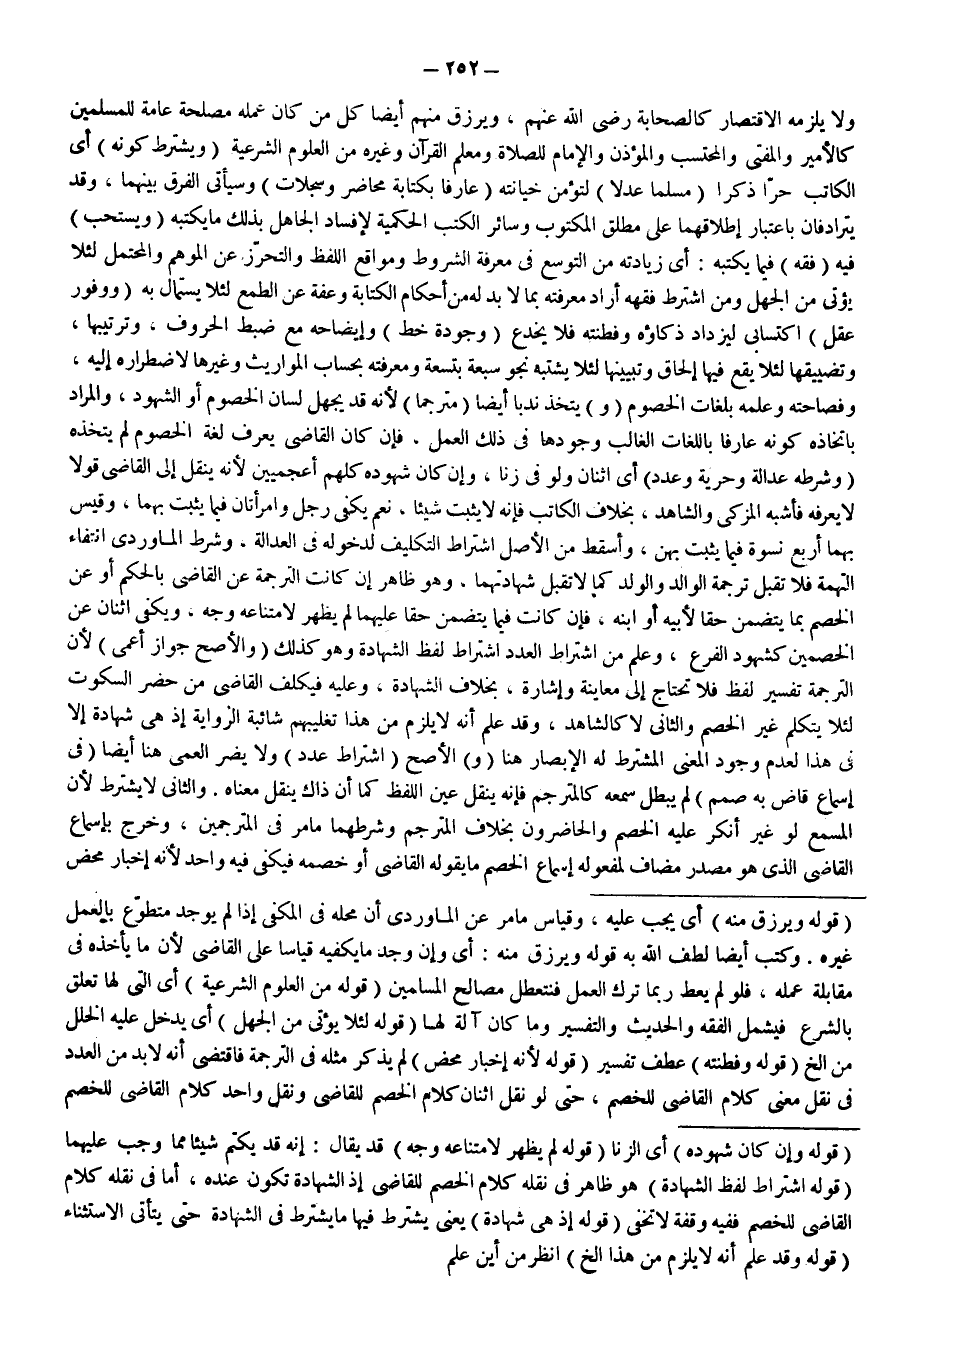 — ٢٥٢ —
ولا يلزمه الاقتصار كالصحابة رضى الله عنهم ، ويرزق منهم أيضا كل من كان عمله مصلحة عامة للمسلمين
كالأمير والمفتى والمحتسب والمؤذن والإمام للصلاة ومعلم القرآن وغيره من العلوم الشرعية ( ويشترط كونه ) أى
الكاتب حرّا ذكرا ( مسلما عدلا ) لتؤمن خيانته ( عارفا بكتابة محاضر وسجلات ) وسيأتى الفرق بينهما ، وقد
يترادفان باعتبار إطلاقهما على مطلق المكتوب وسائر الكتب الحكمية لإفساد الجاهل بذلك مايكتبه ( ويستحب )
فيه ( فقه ) فيما يكتبه : أى زيادته من التوسع فى معرفة الشروط ومواقع اللفظ والتحرّز عن الموهم والمحتمل لئلا
يؤتى من الجهل ومن اشترط فقهه أراد معرفته بما لا بد له من أحكام الكتابة وعفة عن الطمع لئلا يستمال به ( ووفور
عقل ) اكتسابى ليزداد ذكاؤه وفطنته فلا يخدع ( وجودة خط ) وإيضاحه مع ضبط الحروف ، وترتيبها ،
وتضييقها لئلا يقع فيها إلحاق وتبيينها لئلا يشتبه نحو سبعة بتسعة ومعرفته بحساب المواريث وغيرها لاضطراره إليه ،
وفصاحته وعلمه بلغات الخصوم ( و ) يتخذ ندبا أيضا ( مترجما ) لأنه قد يجهل لسان الخصوم أو الشهود ، والمراد
باتخاذه كونه عارفا باللغات الغالب وجودها فى ذلك العمل . فإن كان القاضى يعرف لغة الخصوم لم يتخذه
( وشرطه عدالة وحرية وعدد) أى اثنان ولو فى زنا ، وإن كان شهوده كلهم أعجميين لأنه ينقل إلى القاضى قولا
لايعرفه فأشبه المزكى والشاهد ، بخلاف الكاتب فإنه لايثبت شيئا . نعم يكفى رجل وامرأتان فيما يثبت بهما ، وقيس
بهما أربع نسوة فيما يثبت بهن ، وأسقط من الأصل اشتراط التكليف لدخوله فى العدالة . وشرط الماوردى انتفاء
التهمة فلا تقبل ترجمة الوالد والولد كما لاتقبل شهادتهما . وهو ظاهر إن كانت الترجمة عن القاضى بالحكم أو عن
الخصم بما يتضمن حقا لأبيه أو ابنه ، فإن كانت فيما يتضمن حقا عليهما لم يظهر لامتناعه وجه ، ويكفى اثنان عن
الخصمين كشهود الفرع ، وعلم من اشتراط العدد اشتراط لفظ الشهادة وهو كذلك ( والأصح جواز أعمى ) لأن
الترجمة تفسير لفظ فلا تحتاج إلى معاينة وإشارة ، بخلاف الشهادة ، وعليه فيكلف القاضى من حضر السكوت
لئلا يتكلم غير الخصم والثانى لا كالشاهد ، وقد علم أنه لايلزم من هذا تغليبهم شائبة الرواية إذ هى شهادة إلا
فى هذا لعدم وجود المعنى المشترط له الإبصار هنا ( و) الأصح ( اشتراط عدد ) ولا يضر العمى هنا أيضا ( فى
إسماع قاض به صمم ) لم يبطل سمعه كالمترجم فإنه ينقل عين اللفظ كما أن ذاك ينقل معناه . والثانى لايشترط لأن
المسمع لو غير أنكر عليه الخصم والحاضرون بخلاف المترجم وشرطهما مامر فى المترجمين ، وخرج بإسماع
القاضى الذى هو مصدر مضاف لمفعوله إسماع الخصم مايقوله القاضى أو خصمه فيكفى فيه واحد لأنه إخبار محض
( قوله ويرزق منه ) أى يجب عليه ، وقياس مامر عن الماوردى أن محله فى المكفى إذا لم يوجد متطوّع بالعمل
غيره . وكتب أيضا لطف الله به قوله ويرزق منه : أى وإن وجد مايكفيه قياسا على القاضى لأن ما يأخذه فى
مقابلة عمله ، فلو لم يعط ربما ترك العمل فتتعطل مصالح المسلمين ( قوله من العلوم الشرعية ) أى التى لها تعلق
بالشرع فيشمل الفقه والحديث والتفسير وما كان آلة لها ( قوله لئلا يؤتى من الجهل ) أى يدخل عليه الخلل
من الخ ( قوله وفطنته ) عطف تفسير ( قوله لأنه إخبار محض ) لم يذكر مثله فى الترجمة فاقتضى أنه لابد من العدد
فى نقل معنى كلام القاضى للخصم ، حتى لو نقل اثنان كلام الخصم للقاضى ونقل واحد كلام القاضى للخصم
( قوله وإن كان شهوده ) أى الزنا ( قوله لم يظهر لامتناعه وجه ) قد يقال : إنه قد يكتم شيئا مما وجب عليهما
( قوله اشتراط لفظ الشهادة ) هو ظاهر فى نقله كلام الخصم للقاضى إذ الشهادة تكون عنده ، أما فى نقله كلام
القاضى للخصم ففيه وقفة لاتخفى ( قوله إذ هى شهادة ) يعنى يشترط فيها مايشترط فى الشهادة حتى يتأتى الاستثناء
( قوله وقد علم أنه لايلزم من هذا الخ ) انظر من أين علم